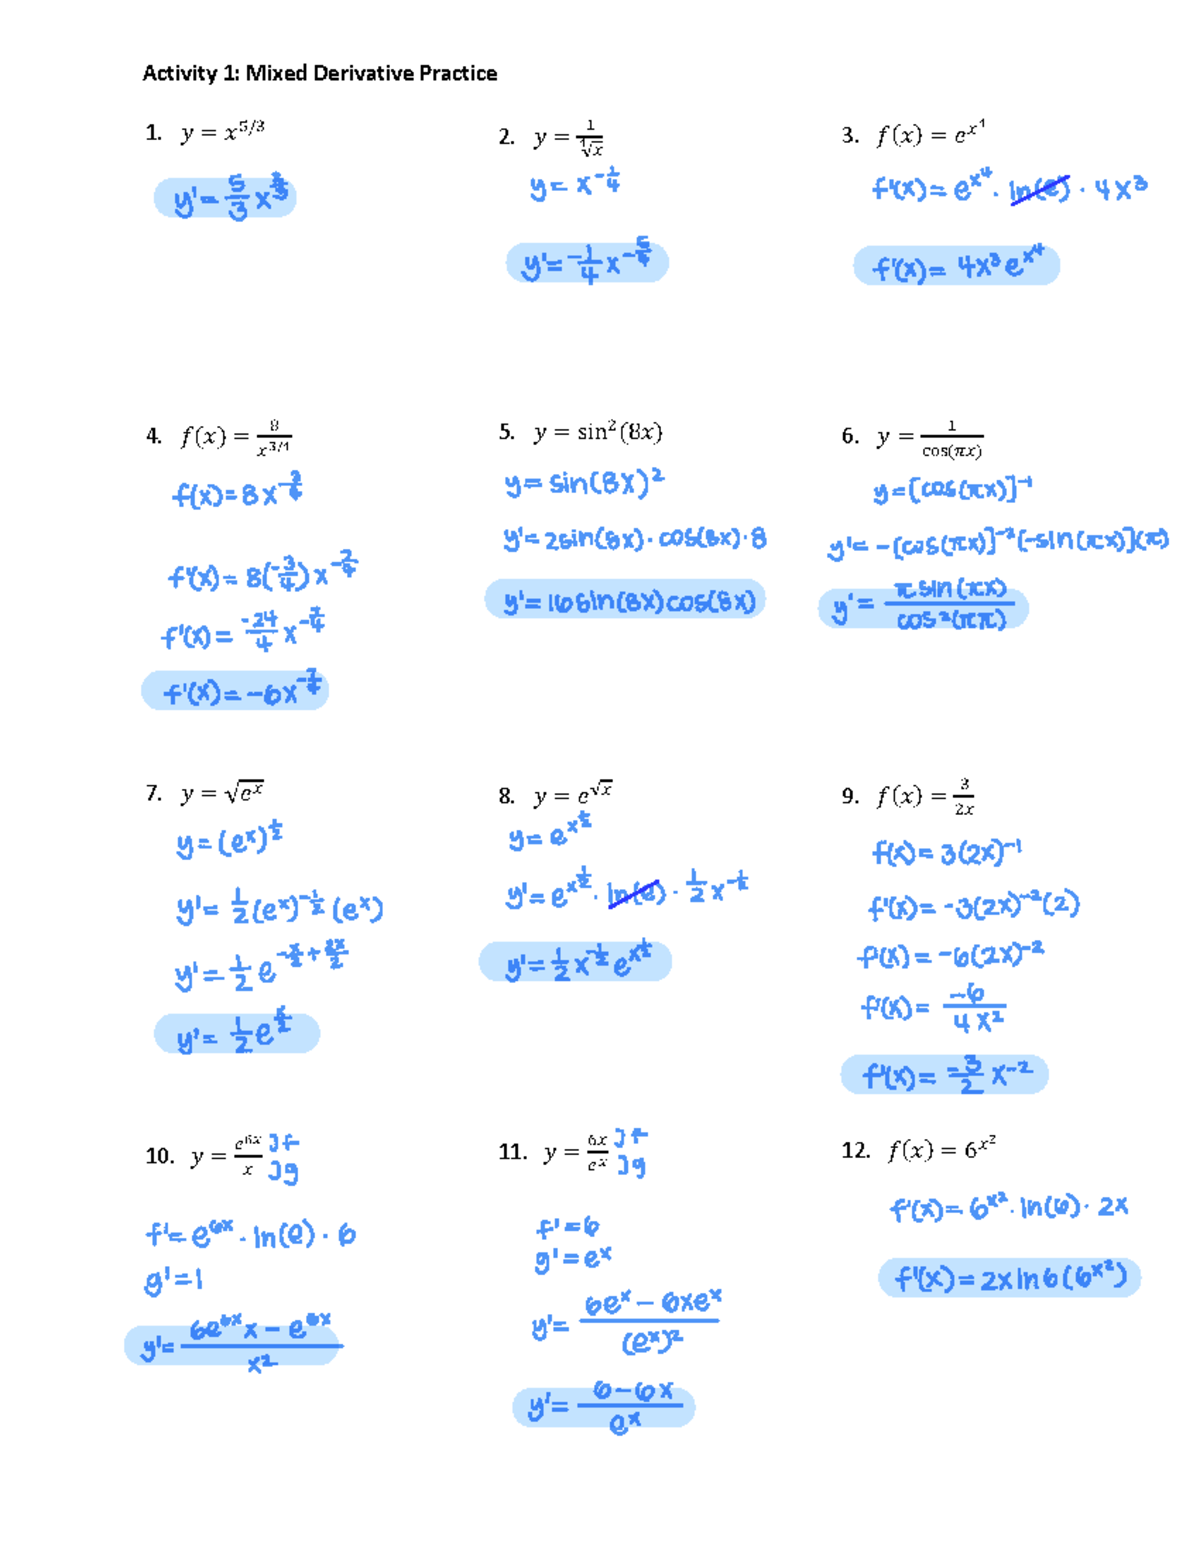 Activity 1: Mixed Derivative Practice
1. y = x^{5/3}
y' = 5/3 x^{2/3}
2. y = 1/∜x
y = x^{-1/4}
y' = -1/4 x^{-5/4}
3. f(x) = e^{x^4}
f'(x) = e^{x^4} · ln(e) · 4x^3
f'(x) = 4x^3 e^{x^4}
4. f(x) = 8/x^{3/4}
f(x) = 8x^{-3/4}
f'(x) = 8(-3/4) x^{-7/4}
f'(x) = -24/4 x^{-7/4}
f'(x) = -6x^{-7/4}
5. y = sin^2(8x)
y = sin(8x)^2
y' = 2sin(8x) · cos(8x) · 8
y' = 16sin(8x)cos(8x)
6. y = 1/cos(πx)
y = [cos(πx)]^{-1}
y' = -[cos(πx)]^{-2}[-sin(πx)](π)
y' = π sin(πx)/cos^2(ππ)
7. y = √e^x
y = (e^x)^{1/2}
y' = 1/2 (e^x)^{-1/2} (e^x)
y' = 1/2 e^{-x/2 + 2x/2}
y' = 1/2 e^{x/2}
8. y = e^{√x}
y = e^{x^{1/2}}
y' = e^{x^{1/2}} · ln(e) · 1/2 x^{-1/2}
y' = 1/2 x^{-1/2} e^{x^{1/2}}
9. f(x) = 3/2x
f(x) = 3(2x)^{-1}
f'(x) = -3(2x)^{-2}(2)
f'(x) = -6(2x)^{-2}
f'(x) = -6/4x^2
f'(x) = -3/2 x^{-2}
10. y = e^{6x}/x ]f ]g
f' = e^{6x} · ln(e) · 6
g' = 1
y' = (6e^{6x}x - e^{6x})/x^2
11. y = 6x/e^x ]f ]g
f' = 6
g' = e^x
y' = (6e^x - 6xe^x)/(e^x)^2
y' = (6 - 6x)/e^x
12. f(x) = 6^{x^2}
f'(x) = 6^{x^2} · ln(6) · 2x
f'(x) = 2x ln6(6^{x^2})